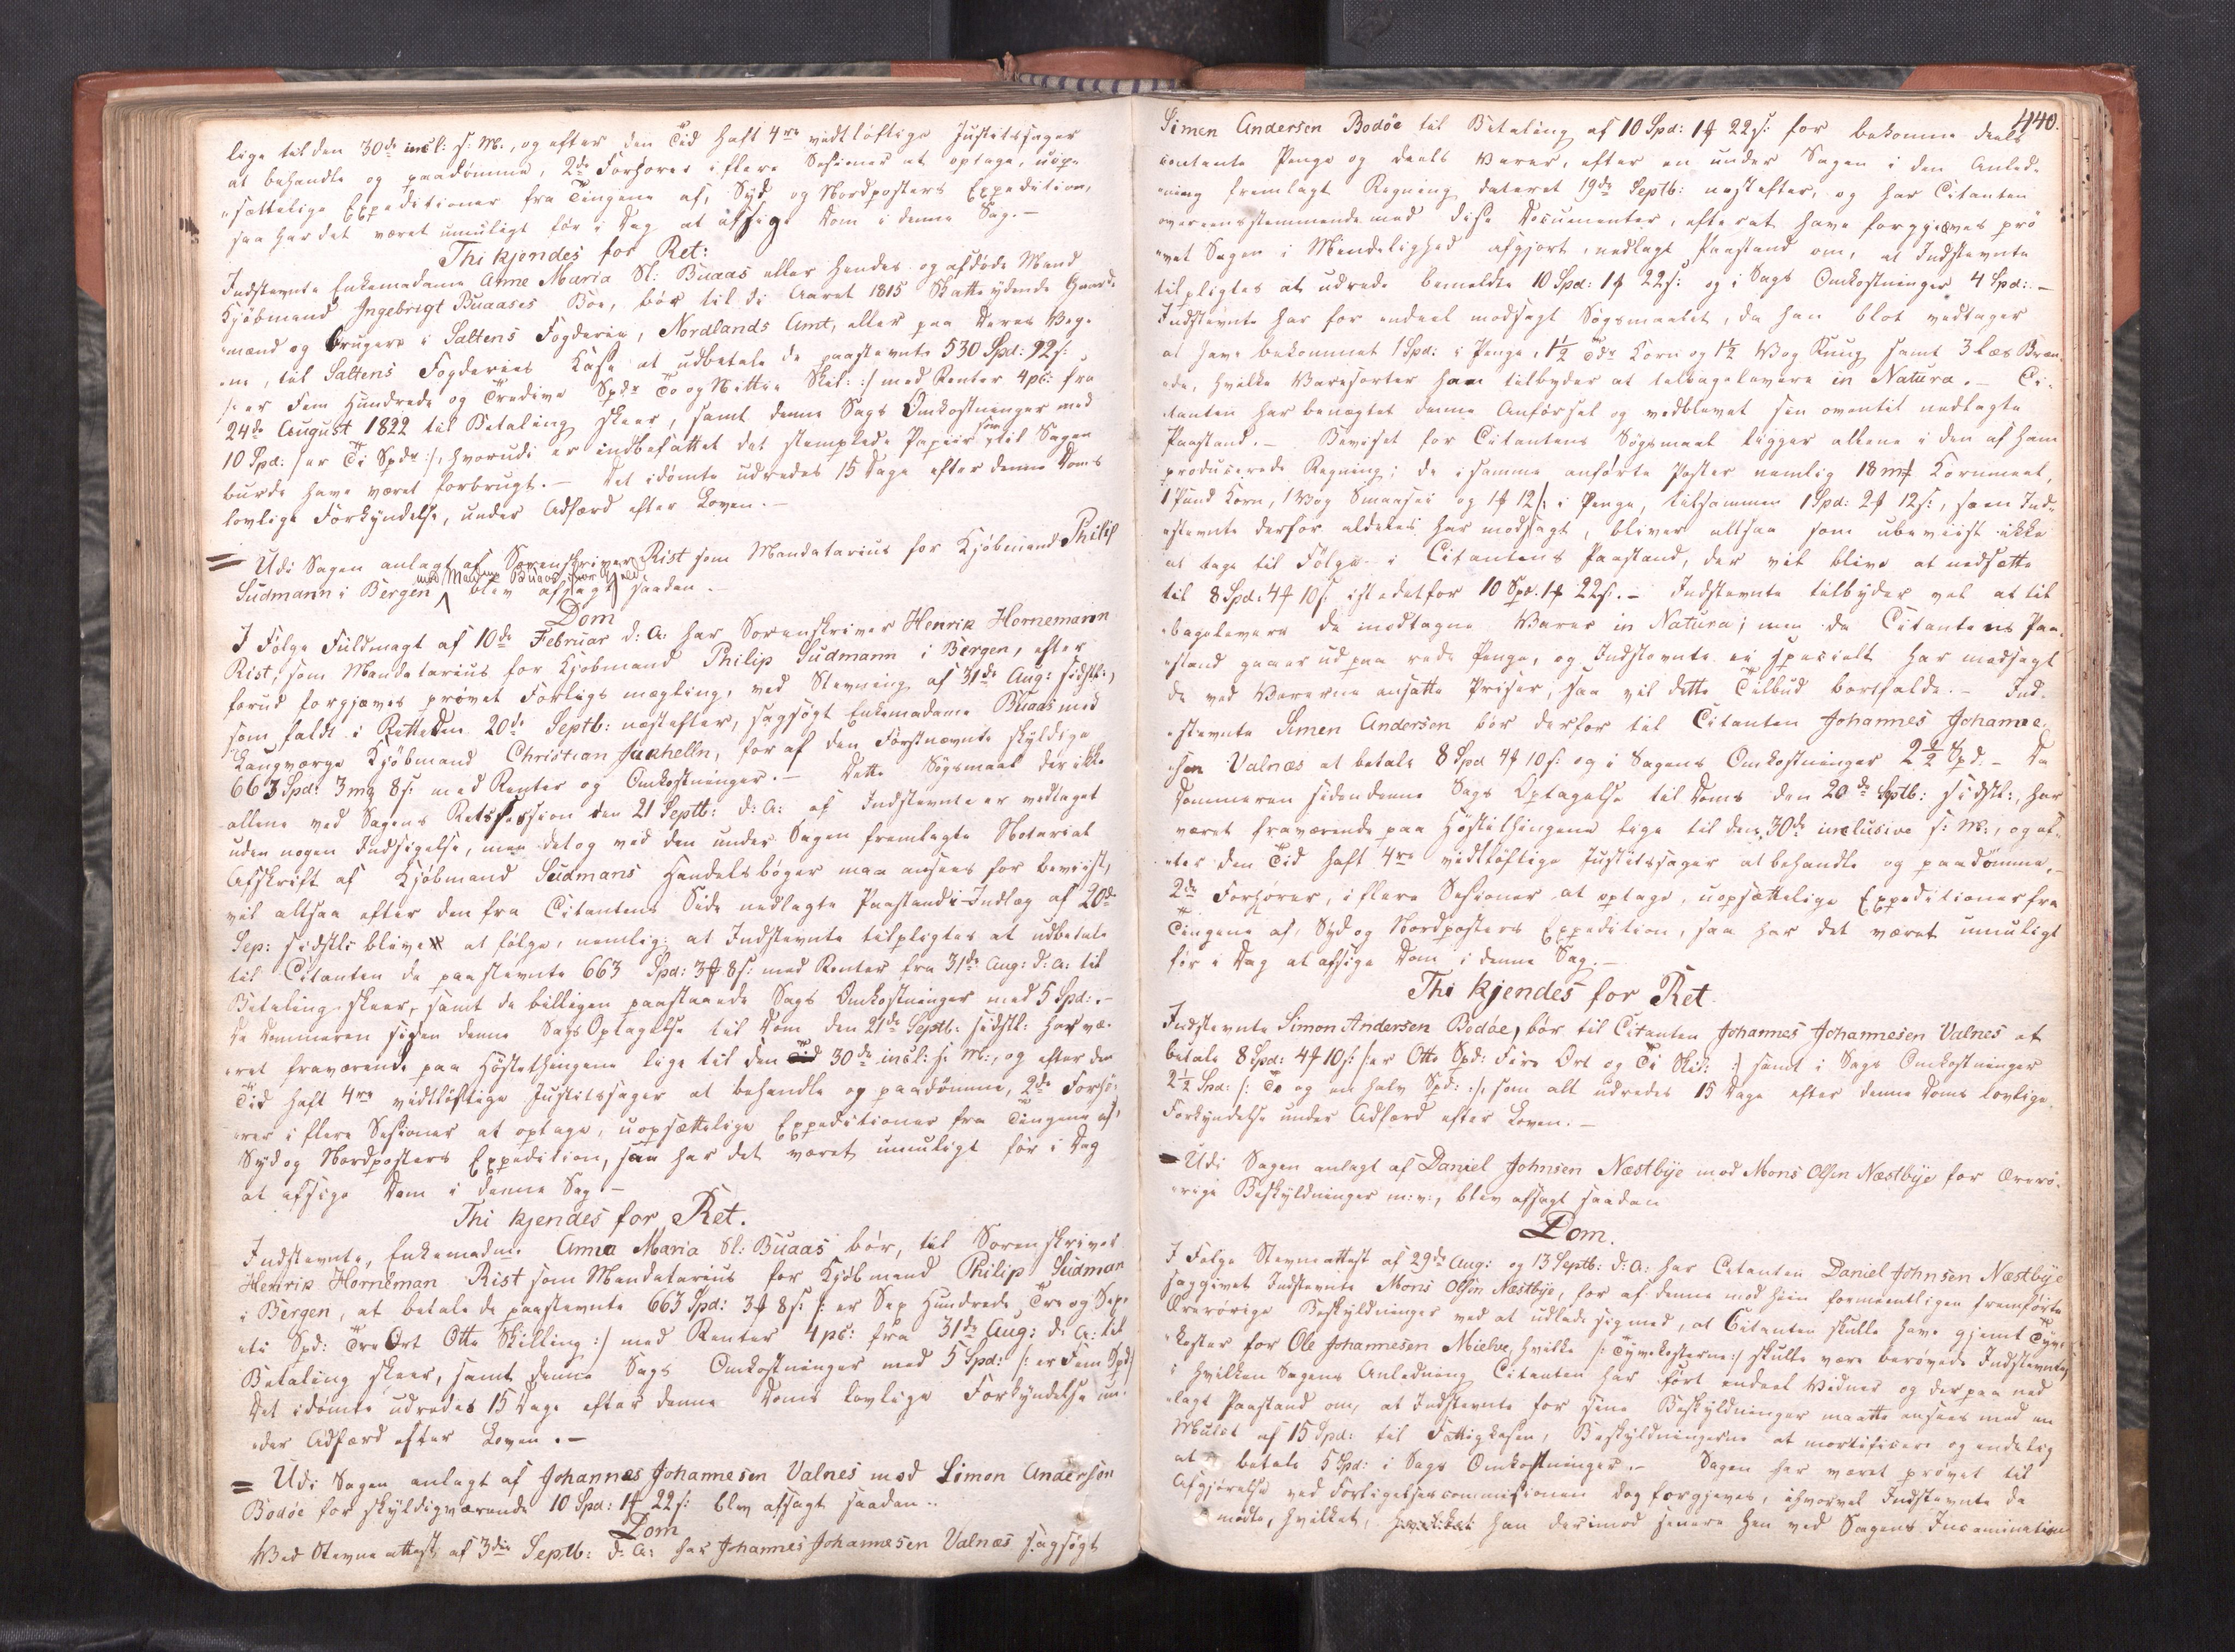 lige til den 30de incl: s: M., og efter den Tid haft 4re vidtløftige Justitssager
at behandle og paadømme, 2de Forhører i flere Sesioner at optage, uop-
sættelige Expeditioner fra Tingene af, Syd og Nordposters Expedition,
saa har det været umuligt før i Dag at afsige Dom i denne Sag. –
Thi kjendes for Ret:
Indstevnte Enkemadame Anne Maria Sl: Buaas eller hendes og afdøde Mand
Kjøbmand Ingebrigt Buaases Boe, bør til de Aaret 1815 Skatteydende Gaard-
mænd og Brugere i Saltens Fogderie, Nordlands Amt, eller paa Deres Veg-
ne, til Saltens Fogderies Kasse at udbetale de paastevnte 530 Spd: 92 s:
/: er Fem Hundrede og Tredive Spdr To og Nittie Skil: :/ med Renter 4 pC: fra
24de August 1822 til Betaling skeer, samt denne Sags Omkostninger med
10 Spd: /: er Ti Spdr :/, hvorudi er indbefattet det stemplede Papiir som til Sagen
burde have været forbrugt. – Det idømte udredes 15 Dage efter denne Doms
lovlige Forkyndelse, under Adfærd efter Loven. –
= Udi Sagen anlagt af Sorenskriver Rist som Mandatarius for Kjøbmand Philip
Sudmann i Bergen mod Madme Buaas for Gjeld blev afsagt saadan. –
Dom
I Følge Fuldmagt af 10de Februar d: A: har Sorenskriver Henrik Hornemann
Rist, som Mandatarius for Kjøbmand Philip Sudmann i Bergen, efter
forud forgjæves prøvet Forligs mægling, ved Stevning af 31de Aug: sidstl:,
som faldt i Rette den 20de Septb: næstefter, sagsøgt Enkemadame Buaas med
Laugværge Kjøbmand Christian Jakhelln, for af den Førstnævnte skyldige
663 Spd: 3 mg 8 s: med Renter og Omkostninger. – Dette Søgsmaal der ikke
allene ved Sagens Retssession den 21 Septb: d: A: af Indstevnte er vedtaget
uden nogen Indsigelse, men det og ved den under Sagen fremlagte Notarial
Afskrift af Kjøbmand Sudmans Handelsbøger maa ansees for beviist,
vil altsaa efter den fra Citantens Side nedlagte Paastand i Indlæg af 20de
Sep: sidstl: blive at følge, nemlig: at Indstevnte tilpligtes at udbetale
til Citanten de paastevnte 663 Spd: 3 # 8 s: med Renter fra 31de Aug: d: A: til
Betaling skeer, samt de billigen paastaaede Sags Omkostninger med 5 Spd: –
Da Dommeren siden denne Sags Optagelse til Dom den 21de Septb: sidstl: har væ-
ret fraværende paa Høstethingene lige til den 30de incl: s: M:, og efter den
Tid haft 4re vidtløftige Justitssager at behandle og paadømme, 2de Forhø-
rer i flere Sesioner at optage, uopsættelige Expeditioner fra Tingene af,
Syd og Nordposters Expedition, saa har det været umuligt før i Dag
at afsige Dom i denne Sag –
Thi kjendes for Ret.
Indstevnte, Enkemadme Anna Maria Sl: Buaas bør, til Sorenskriver
Henrik Horneman Rist som Mandatarius for Kjøbmand Philip Sudman
i Bergen, at betale de paastevnte 663 Spd: 3 # 8 s: /: er Sex Hundrede, Tre og Sex-
ti Spd: Tre Ort Otte Skilling :/ med Renter 4 pC: fra 31de Aug: d: A: til
Betaling skeer, samt denne Sags Omkostninger med 5 Spd: /: er Fem Spd :/
Det idømte udredes 15 Dage efter denne Doms lovlige Forkyndelse un-
der Adfærd efter Loven. –
= Udi Sagen anlagt af Johannes Johannesen Valnes mod Simon Anderson
Bodøe for skyldigværende 10 Spd: 1 # 22 s: blev afsagt saadan..
Dom
Ved Stevneattest af 3die Septb: d: A: har Johannes Johannesen Valnæs sagsøgt
440.
Simen Andersen Bodøe til Betaling af 10 Spd: 1 # 22 s: for bekomme deels
contante Penge og deels Varer, efter en under Sagen i den Anled-
ning fremlagt Regning dateret 19de Septb: næstefter, og har Citanten
overeensstemmende med disse Documenter, efterat have forgjæves prø-
vet Sagen i Mindelighed afgjort, nedlagt Paastand om, at Indstevnte
tilpligtes at udrede bemeldte 10 Spd: 1 # 22 s: og i Sags Omkostninger 4 Spd: –
Indstevnte har for endeel modsagt Søgsmaalet, da han blot vedtager
at have bekommet 1 Spd: i Penge, 1½ Tdr Korn og 1½ Vog Rug samt 3 Læs Bræn-
de, hvilke Varesorter han tilbyder at tilbagelevere in Natura. – Ci-
tanten har benægtet denne Anførsel og vedblevet sin oventil nedlagte
Paastand. – Beviset for Citantens Søgsmaal ligger allene i den af ham
producerede Regning; de i samme anførte Poster nemlig 18 m# Kornmeel,
1 Pund Korn, 1 Vog Smaasei og 1 # 12 s: i Penge, tilsammen 1 Spd: 2 # 12 s:, som Ind-
stevnte derfor aldeles har modsagt, bliver altsaa som ubeviist ikke
at tage til Følge i Citantens Paastand, der vil blive at nedsætte
til 8 Spd: 4 # 10 s: istedetfor 10 Spd. 1 # 22 s: – Indstevnte tilbyder vel at til-
bagelevere de modtagne Varer in Natura; men da Citantens Paa-
stand gaaer ud paa rede Penge, og Indstevnte ei specielt har modsagt
de ved Varerne ansatte Priser, saa vil dette Tilbud bortfalde. – Ind-
stevnte Simen Andersen bør derfor til Citanten Johannes Johanne-
sen Valnæs at betale 8 Spd 4 # 10 s: og i Sagens Omkostninger 2½ Spd. – Da
Dommeren siden denne Sags Optagelse til Doms den 20de Septb: sidstl:, har
været fraværende paa Høstethingene lige til den 30de inclusive s: M:, og ef-
ter den Tid haft 4re vidtløftige Justitssager at behandle og paadømme,
2de Forhører, i flere Sesioner at optage, uopsættelige Expeditioner fra
Tingene af, Syd og Nordposters Expedition, saa har det været umuligt
før i Dag at afsige Dom i denne Sag. –
Thi kjendes for Ret.
Indstevnte Simon Andersen Bodøe, bør til Citanten Johannes Johannesen Valnes at
betale 8 Spd: 4 # 10 s: /: er Otte Spd: Fire Ort og Ti Skil: :/ samt i Sags Omkostninger
2½ Spd: /: To og en halv Spd: :/ som alt udredes 15 Dage efter denne Doms lovlige
Forkyndelse under Adfærd efter Loven. –
= Udi Sagen anlagt af Daniel Johnsen Næstbye mod Mons Olsen Næstbye for Ærerø-
rige Beskyldninger m: v:, blev afsagt saadan
Dom.
I Følge Stevneattest af 29de Aug: og 13 Septb: d: A: har Citanten Daniel Johnsen Næstbye
saggivet Indstevnte Mons Olsen Næstbye, for af denne mod hiin formeentligen fremførte
Ærerørige Beskyldninger ved at udlade sig med, at Citanten skulle have gjemt Tyve-
koster for Ole Johannesen Mielve, hvilke /: Tyvekosterne :/ skulle være berøvede Indstevnte,
i hvilken Sagens Anledning Citanten har ført endeel Vidner og derpaa ned-
lagt Paastand om, at Indstevnte for sine Beskyldninger maatte ansees med en
Mulct af 15 Spd: til Fattigkassen, Beskyldningerne at mortificere og endelig
at betale 5 Spd: i Sags Omkostninger. – Sagen har været prøvet til
Afgjørelse ved Forligelsescommisionen dog forgjeves, ihvorvel Indstevnte da
mødte, hvilket han derimod senere hen ved Sagens Incamination